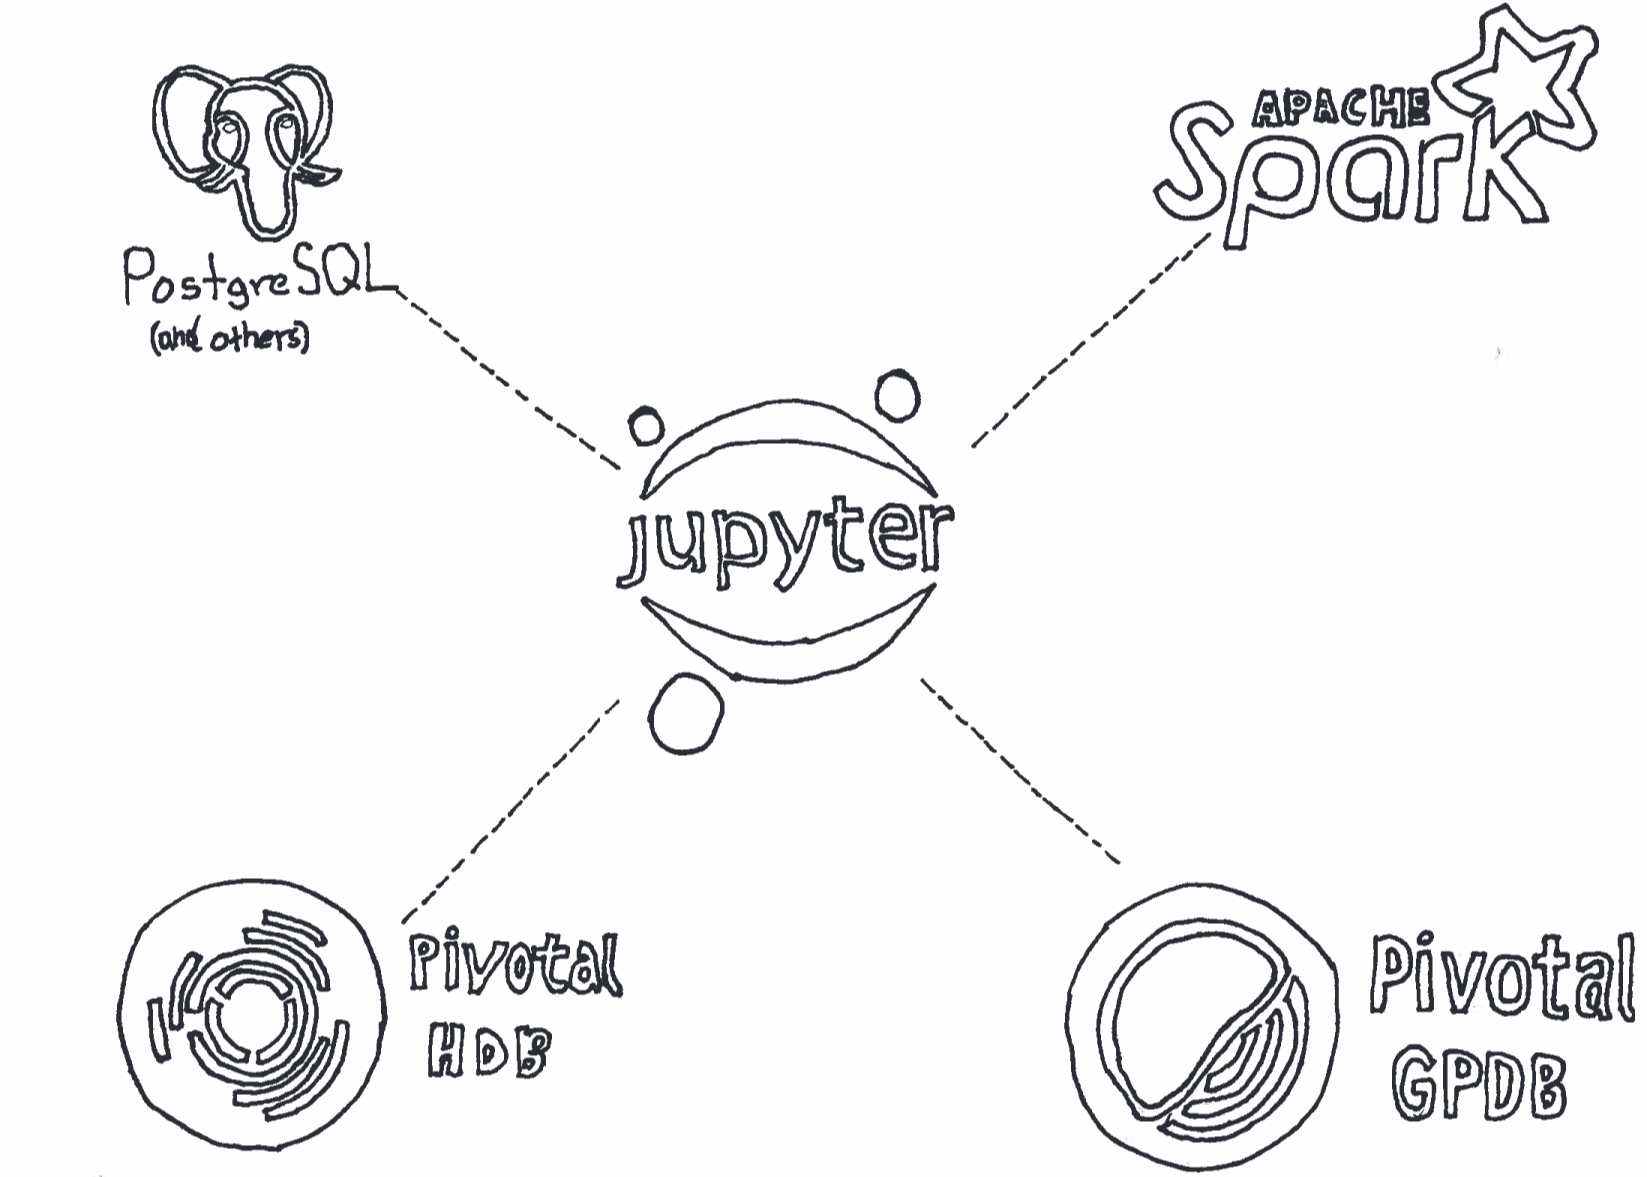 PostgreSQL
(and others)
APACHE
Spark
jupyter
Pivotal
HDB
Pivotal
GPDB